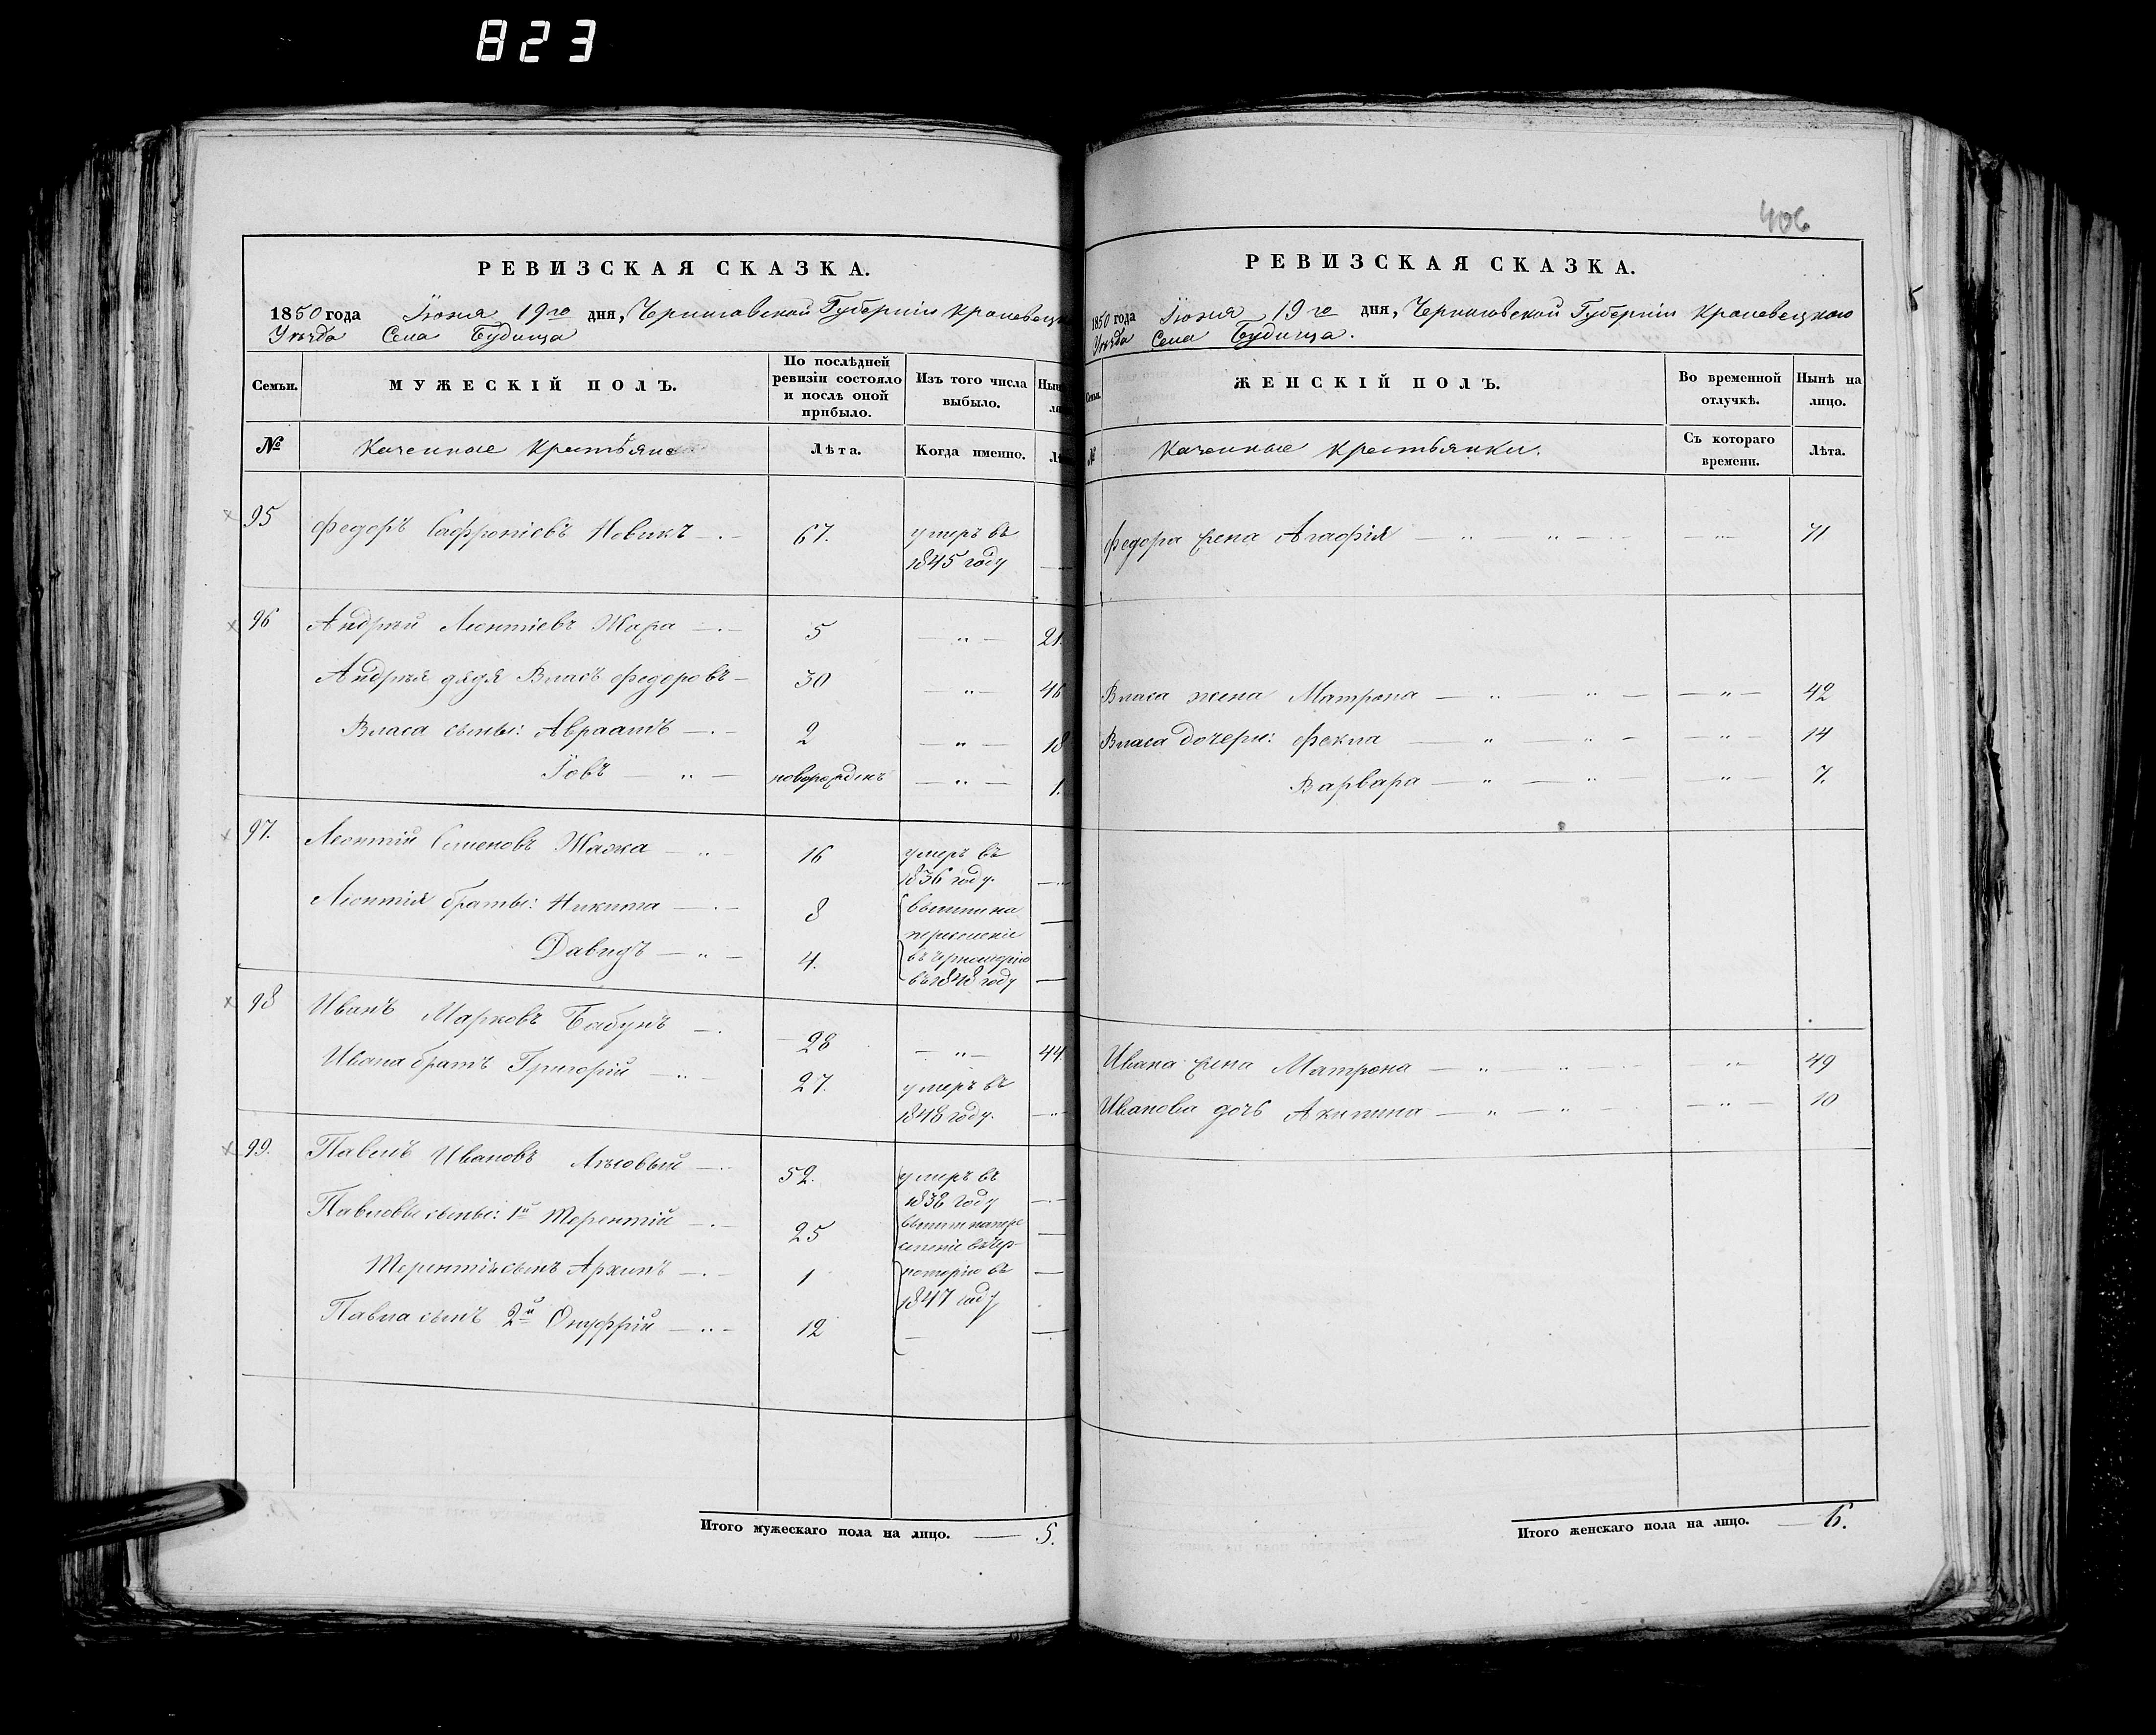 823
РЕВИЗСКАЯ СКАЗКА.
1850 года Іюня 19го дня, Черниговской Губерніи Кролевецк
Уѣзда Села Будища
Семьи. МУЖЕСКІЙ ПОЛЪ. По послѣдней ревизіи состояло и послѣ оной прибыло. Изъ того числа выбыло. Нын ли
№ Казенные Крестьяне Лѣта. Когда именно. Лѣ
95 Федоръ Сафроніевъ Новикъ 67. умеръ въ
1845 году
96 Андрей Леонтіевъ 5 21.
Андрея дядя Власъ Федоровъ 30 46
Власа сыны: Авраамъ 2 18
Іовъ новорожденъ 1.
97. Леонтій Семеновъ 16 умеръ въ
1836 году.
Леонтія братья: Никита 8 вышли на
переселеніе
Давидъ 4. въ Черноморію
въ 1848 году
98 Иванъ Марковъ Бабунъ 28 44.
Ивана братъ Григорій 27. умеръ въ
1848 году.
99. Павелъ Ивановъ Лѣсовый 52. умеръ въ
1838 году
Павловы сыны: 1й Терентій 25 вышли на пере
селеніе въ Чер-
Терентія сынъ Архипъ 1 номорію въ
1847 году
Павла сынъ 2й Онуфрій 12
Итого мужескаго пола на лицо. 5.
406
РЕВИЗСКАЯ СКАЗКА.
1850 года Іюня 19го дня, Черниговской Губерніи Кролевецкаго
Уѣзда Села Будища.
Семьи. ЖЕНСКІЙ ПОЛЪ. Во временной отлучкѣ. Нынѣ на лицо.
№ Казенные Крестьянки. Съ котораго времени. Лѣта.
Федора жена Агафія 71
Власа жена Матрона 42
Власа дочери: Фекла 14
Варвара 7.
Ивана жена Матрона 49
Иванова дочь Акилина 10
Итого женскаго пола на лицо. 6.